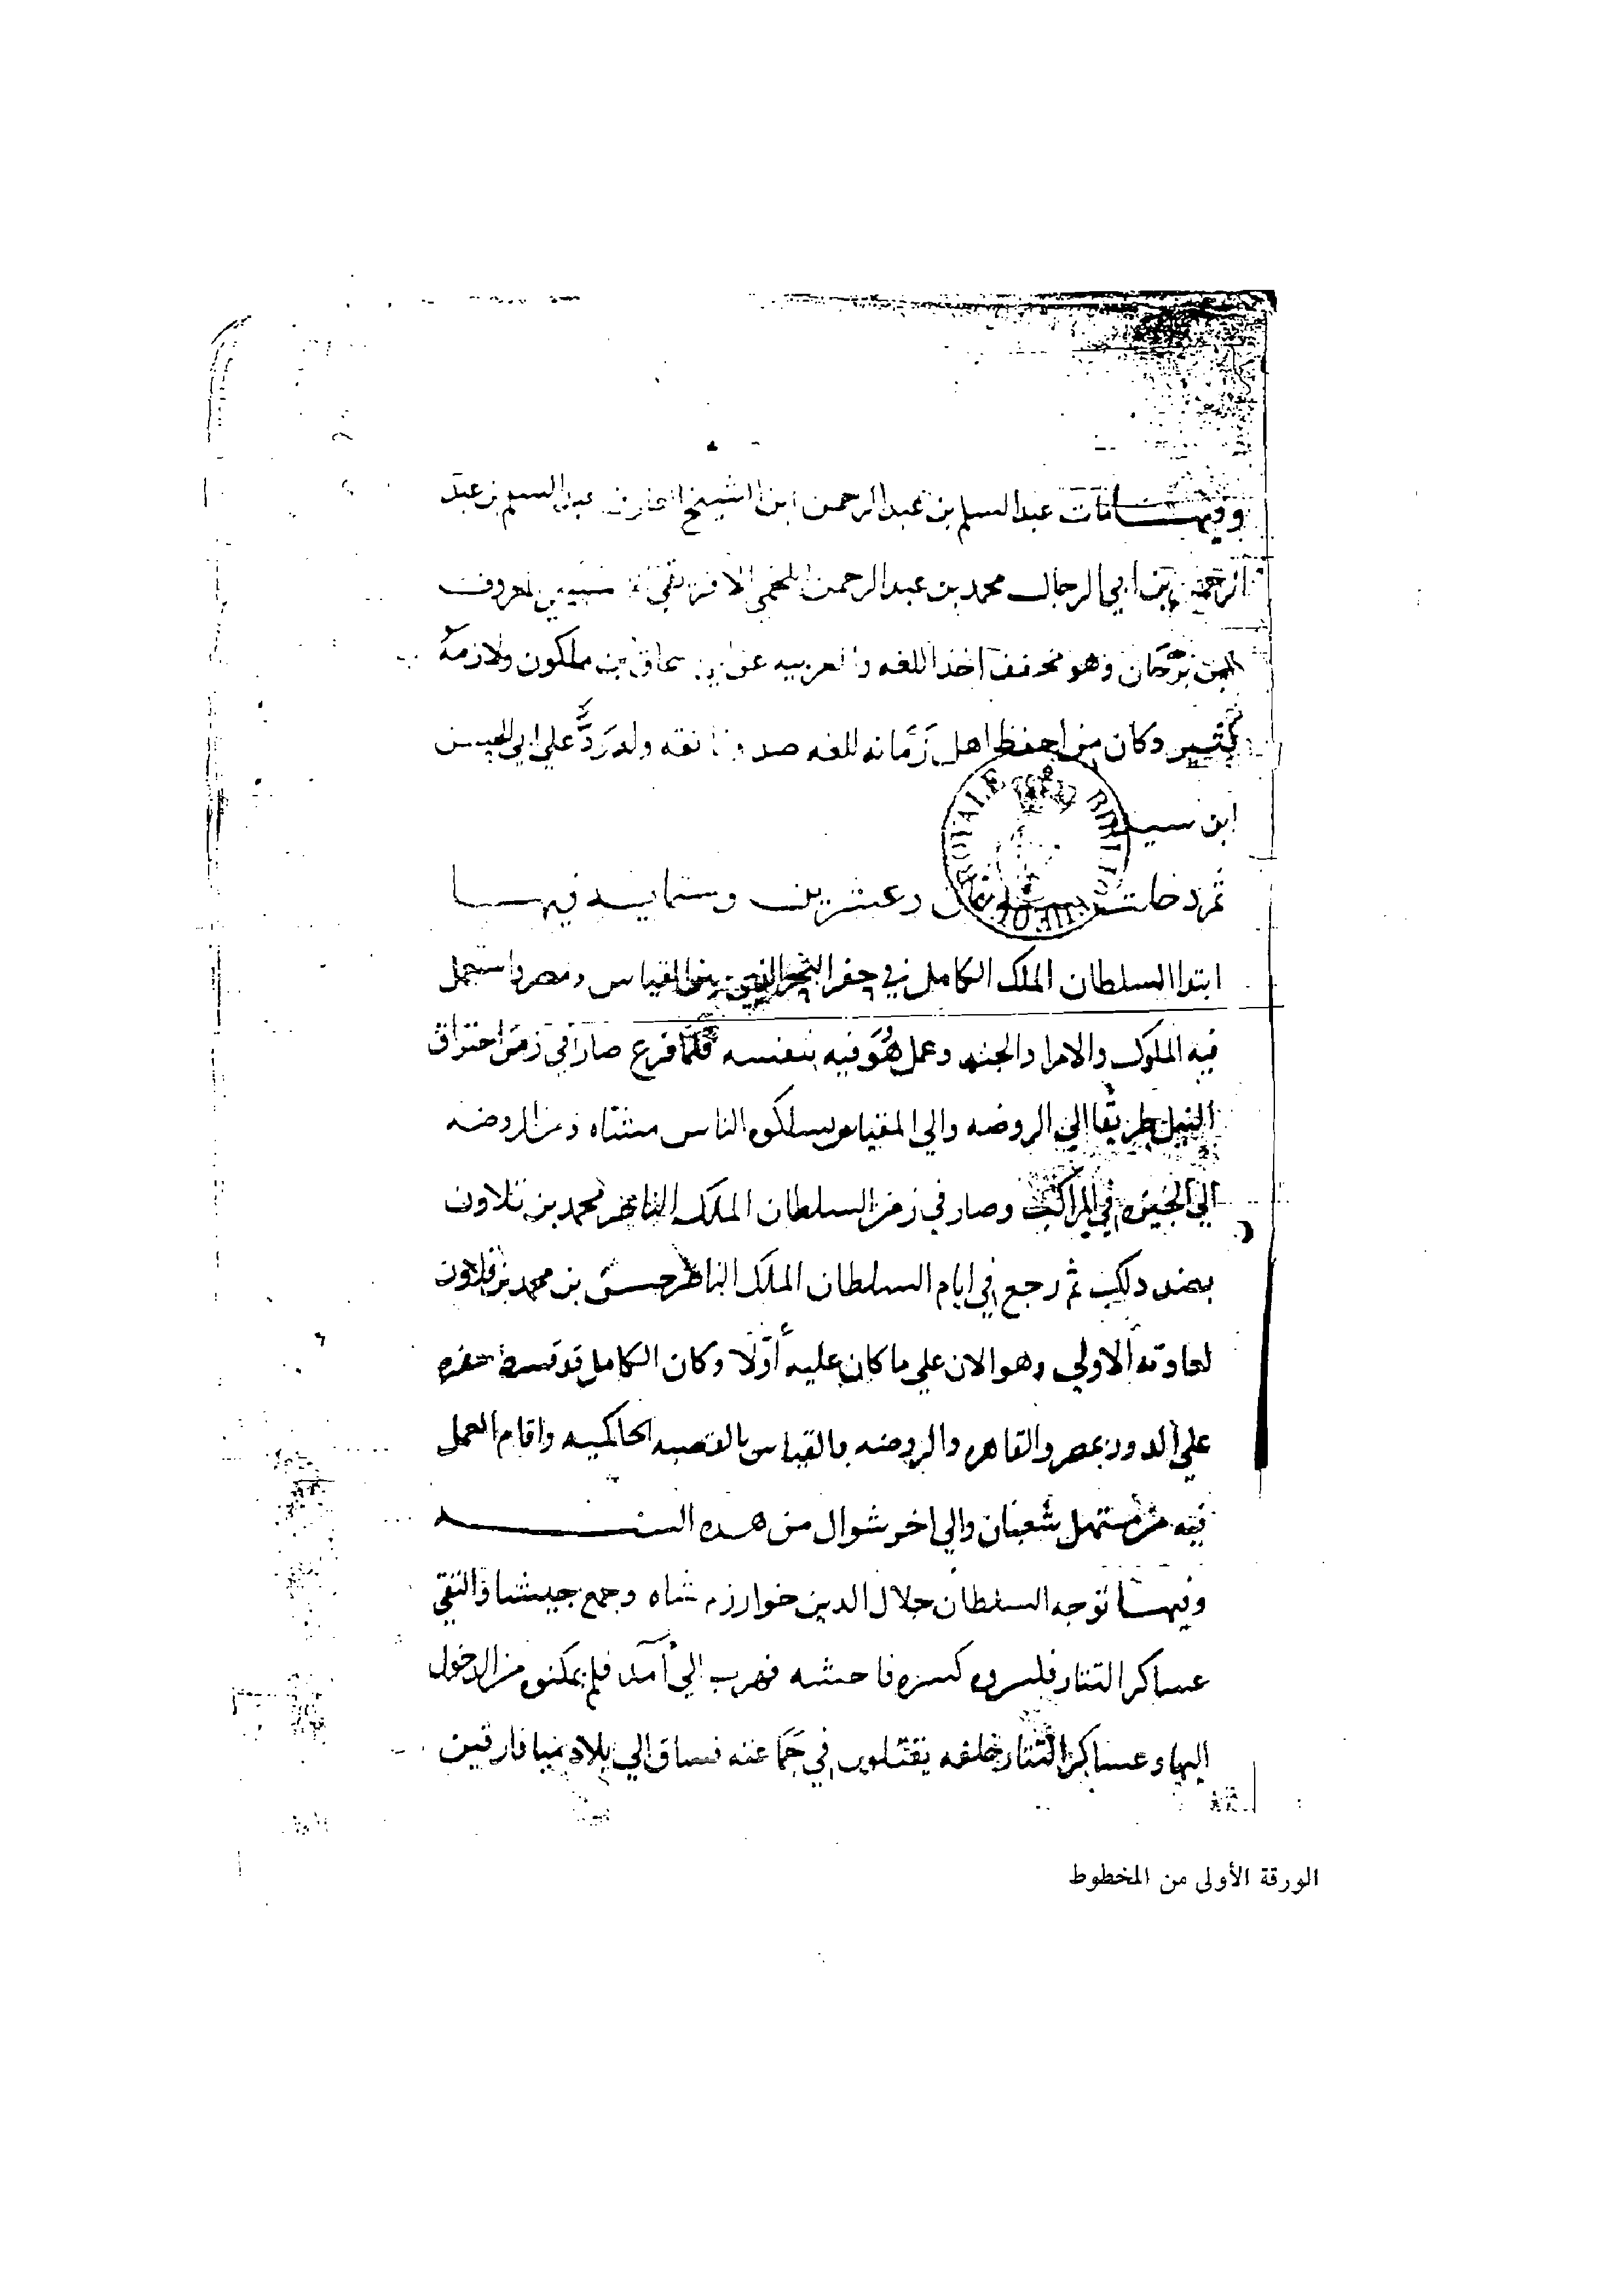 وفيها مات عبد السلم بن عبد الرحمن ابن الشيخ العارف عبد السلم بن عبد
الرحمن بن ابي الرجال محمد بن عبد الرحمن اللخمي الافريقي المعروف
بابن برجان وهو مخفف اخذ اللغه والعربيه عن بن ملكون ولازمه
كثيير وكان من احفظ اهل زمانه للغه صدوقا ثقه وله رد علي ابي الحسن
ابن سيده
ثم دخلت سنة ثمان وعشرين وستمايه فيها
ابتدا السلطان الملك الكامل في حفر البحر الذي بين المقياس ومصر واستعمل
فيه الملوك والامرا والجند وعمل هو فيه بنفسه فلما فرغ صار في زمن احتراق
النيل طريقا الي الروضه والي المقياس يسلكه الناس مشاه ومن الروضه
الي الجيزه في المراكب وصار في زمن السلطان الملك الناصر محمد بن قلاون
بضد دلك ثم رجع في ايام السلطان الملك الناصر حسن بن محمد بن قلاون
لعادته الاولي وهو الان علي ما كان عليه أولا وكان الكامل قد قسط حفره
علي الدور بمصر والقاهره والروضه بالقياس بالقصبه الحاكميه واقام العمل
فيه من مستهل شعبان والي اخر شوال من هده السنه
وفيها توجه السلطان جلال الدين خوارزم شاه وجمع جيشا والتقي
عساكر التتار فكسروه كسره فاحشه فهرب الي آمد فلم يمكنوه من الدخول
اليها وعساكر التتار خلفه يقتلون في جماعته فساق الي بلاد ميافارقين
BIBLIO ROYALE
الورقة الأولى من المخطوط